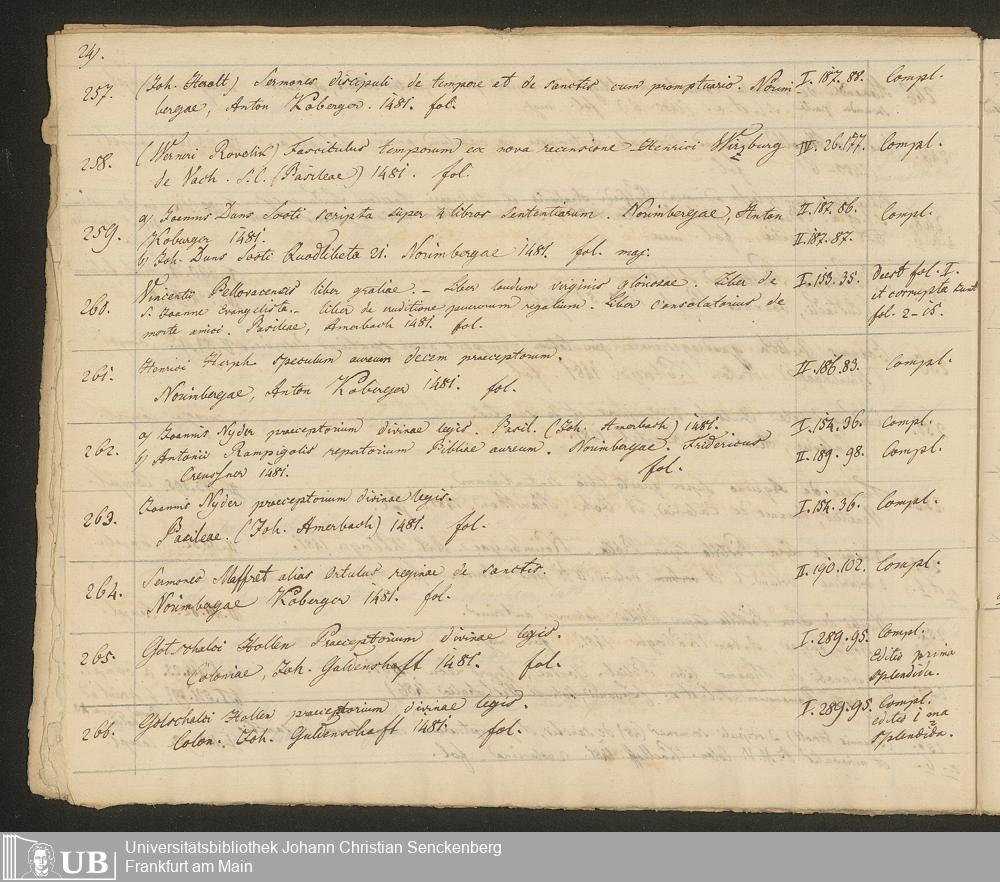 24.
257. (Joh. Heralt) Sermones discipuli de tempore et de sanctis cum promptuario. Norim- I. 187. 88. Compl.
bergae, Anton Koberger. 1481. fol.
258. (Werneri Rovelik) Fascitulus temporum ex nova recensione Henrici Wirzburg IV. 26. 177. Compl.
de Vach. S. l. (Basileae) 1481. fol.
259. a) Joannis Duns Scoti scripta super 4 libros sententiarum. Norimbergae, Anton II. 187. 86. Compl.
Koburger 1481.
b) Joh. Duns Scoti Quodlibeta 21. Norimbergae 1481. fol. maj. II. 187. 87.
260. Vincentii Bellovacensis liber gratiae. – Liber laudum virginis gloriosae. Liber de I. 153. 35. Deest fol. I.
S. Joanne Evangelista. – liber de eruditione puerorum regalium. Liber consolatorius de et corrupta sunt
morte amici. Basileae, Amerbach 1481. fol. fol. 2–15.
261. Henrici Herph speculum aureum decem praeceptorum. II. 186. 83. Compl.
Norimbergae, Anton Koberger 1481. fol.
262. a) Joannis Nyder praeceptorium divinae legis. Basil. (Joh. Amerbach) 1481. I. 154. 36. Compl.
b) Antonii Rampigolis repertorium Bibliae aureum. Norimbergae. Fridericus II. 189. 98. Compl.
Creussner 1481. fol.
263. Joannis Nyder praeceptorium divinae legis. I. 154. 36. Compl.
Basileae. (Joh. Amerbach) 1481. fol.
264. Sermones Maffret alias Ortulus reginae de sanctis. II. 190. 102. Compl.
Norimbergae Koberger 1481. fol.
265. Gotschalci Hollen Praeceptorium divinae legis. I. 289. 95. Compl.
Coloniae, Joh. Guldenschafft 1481. fol. Editio prima
splendida.
266. Gotschalci Hollen praeceptorium divinae legis. I. 289. 95. Compl.
Colon. Joh. Guldenschafft 1481. fol. editio 1ma
splendida.
UB Universitätsbibliothek Johann Christian Senckenberg
Frankfurt am Main